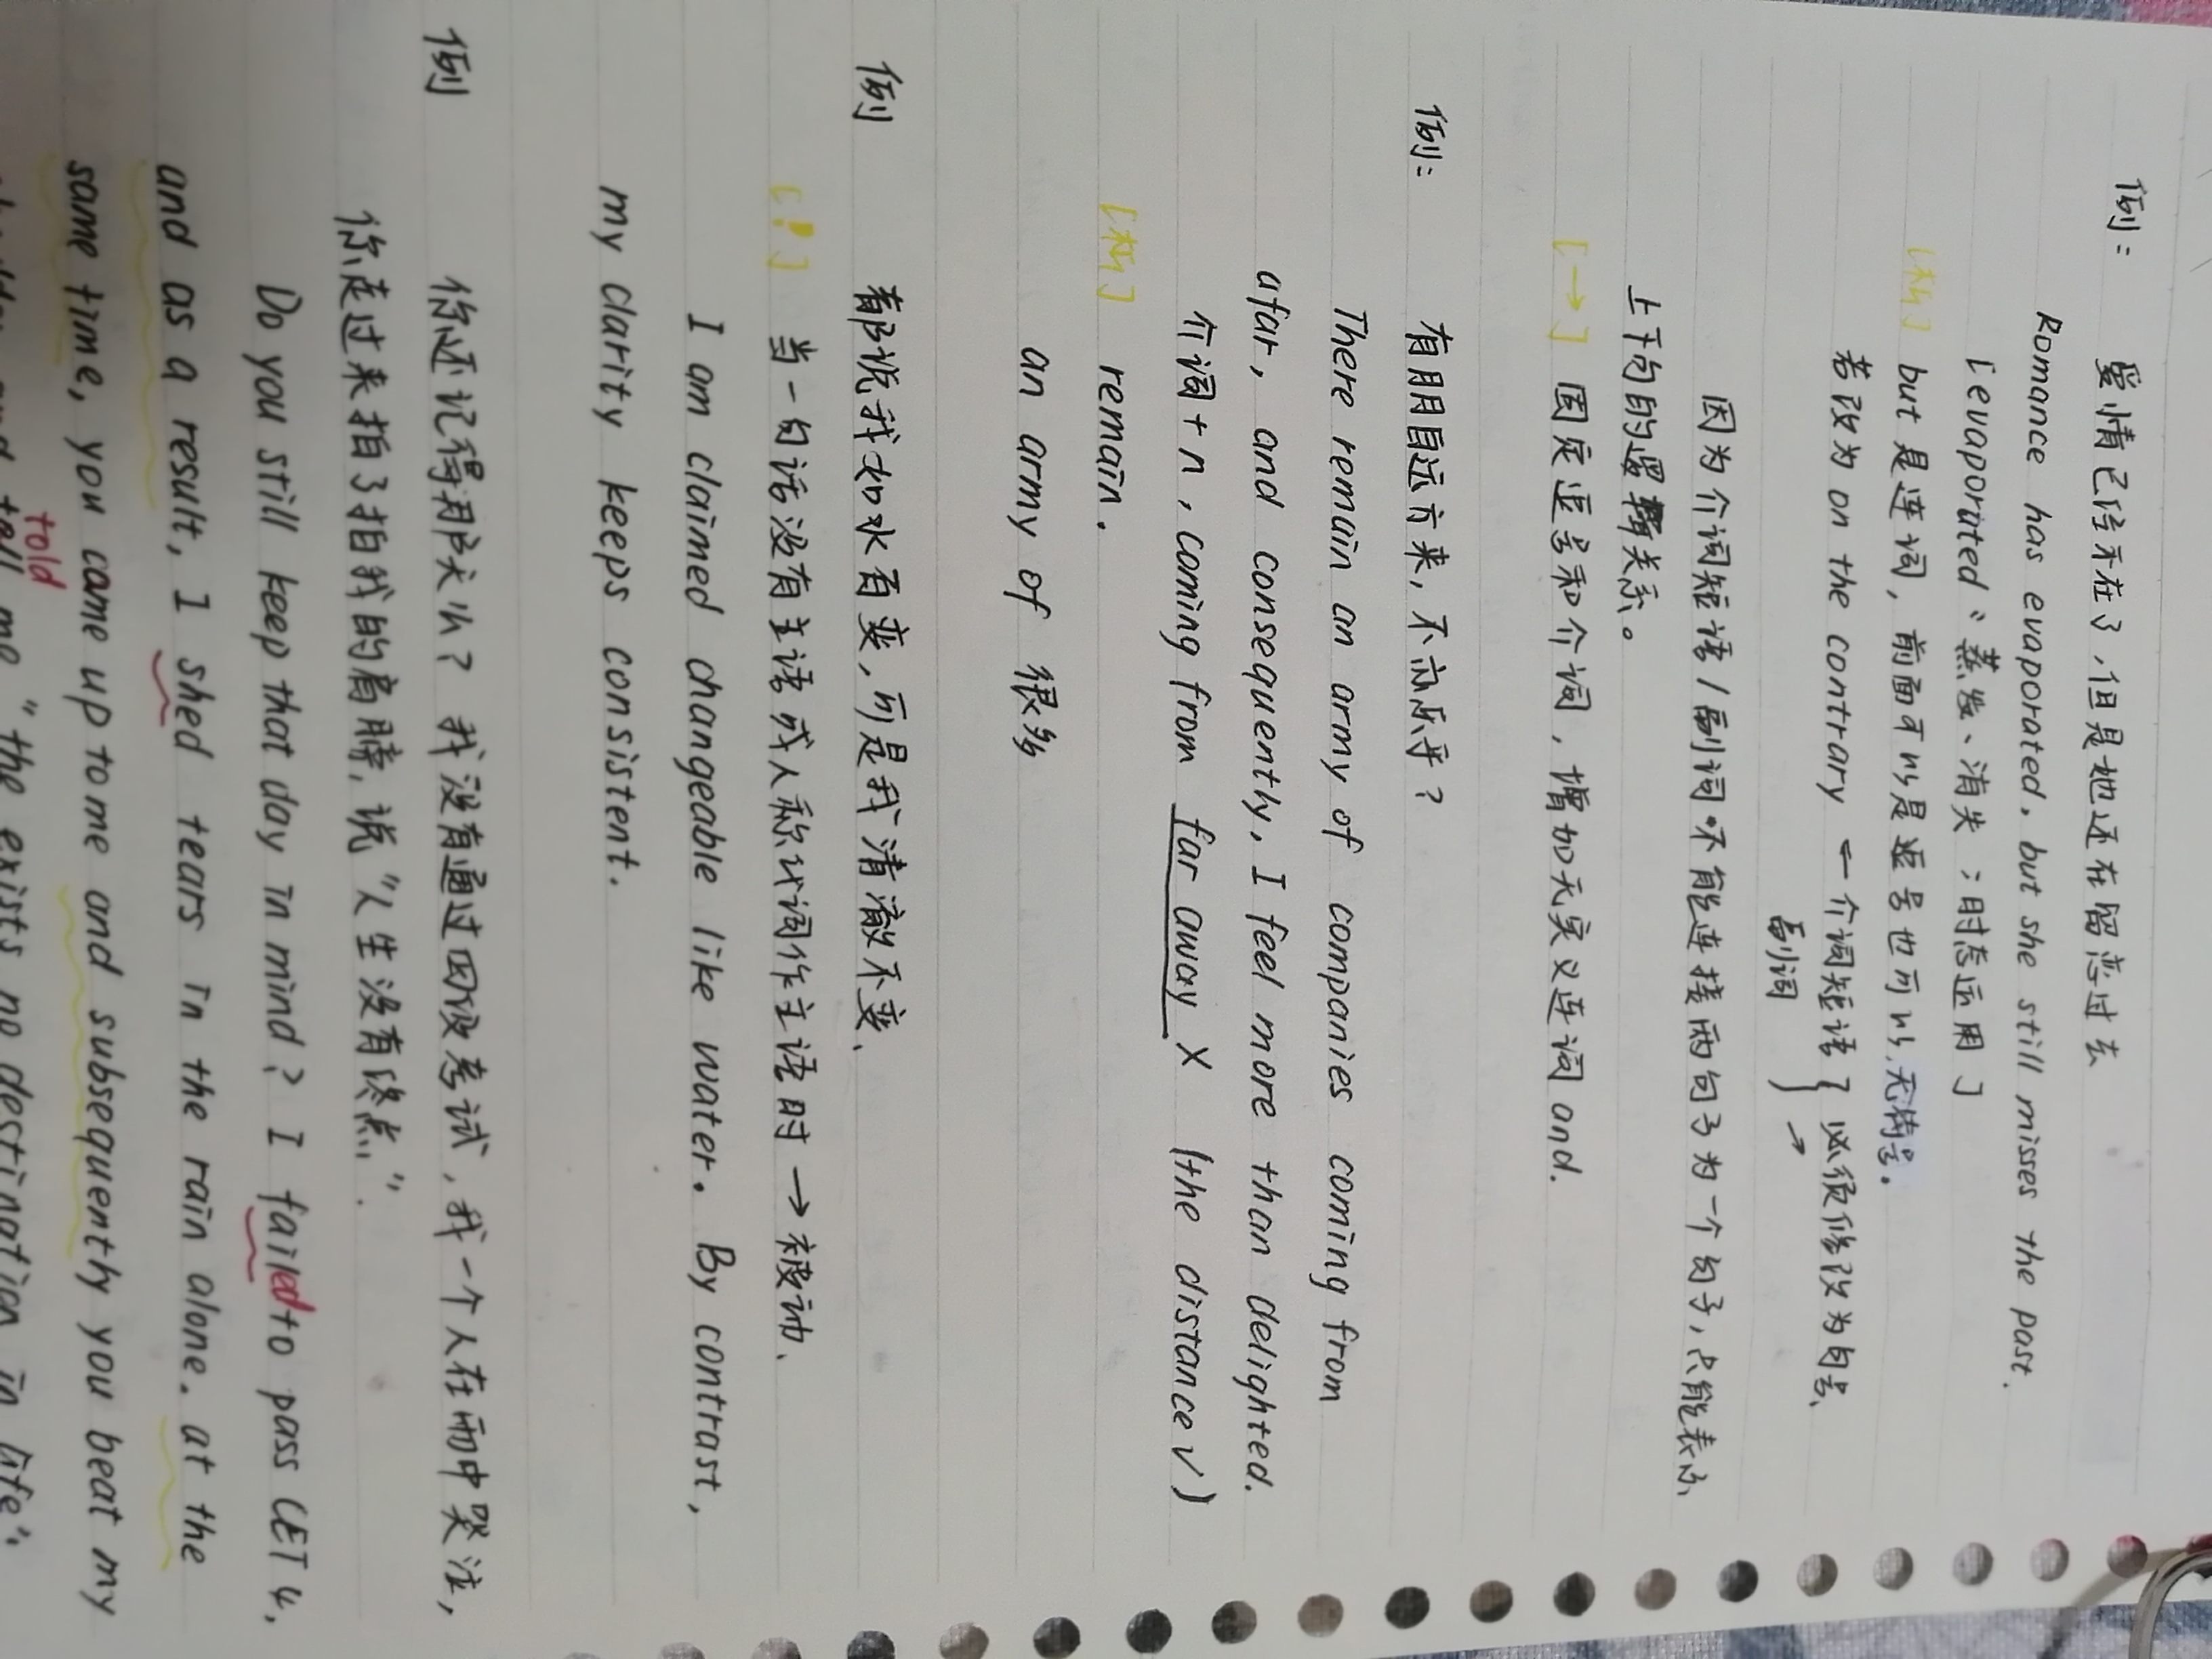 例： 爱情已经不在了，但是她还在留恋过去
Romance has evaporated, but she still misses the past.
[evaporated：蒸发、消失；时态运用]
[析] but 是连词，前面可以是逗号也可以无符号。
若改为 on the contrary ← 介词短语 } 必须修改为句号、
副词 } →
因为介词短语/副词不能连接两句子为一个句子，只能表示
上下句的逻辑关系。
[→] 固定逗号和介词，增加无实义连词 and.
例： 有朋自远方来，不亦乐乎？
There remain an army of companies coming from
afar, and consequently, I feel more than delighted.
介词+n, coming from far away × (the distance√)
[析] remain.
an army of 很多
例 都说我如水百变，可是我清澈不变、
[!] 当一句话没有主语或人称代词作主语时→被动、
I am claimed changeable like water. By contrast,
my clarity keeps consistent.
例 你还记得那天么？我没有通过四级考试，我一个人在雨中哭泣，
你走过来拍了拍我的肩膀，说“人生没有终点”.
Do you still keep that day in mind? I failed to pass CET 4,
and as a result, I shed tears in the rain alone. at the
same time, you came up to me and subsequently you beat my
told
and tell me "the exists no destination in life".